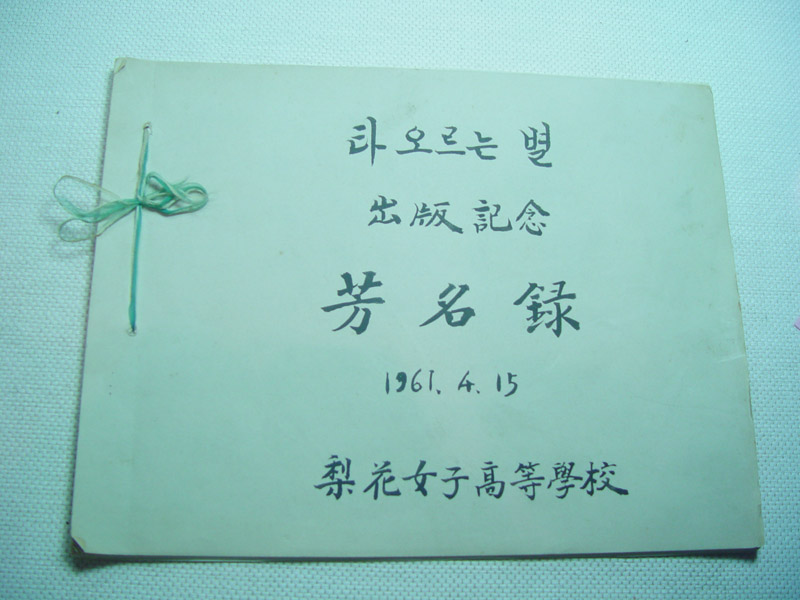 타오르는 별
出版記念
芳名録
1961. 4. 15
梨花女子高等學校